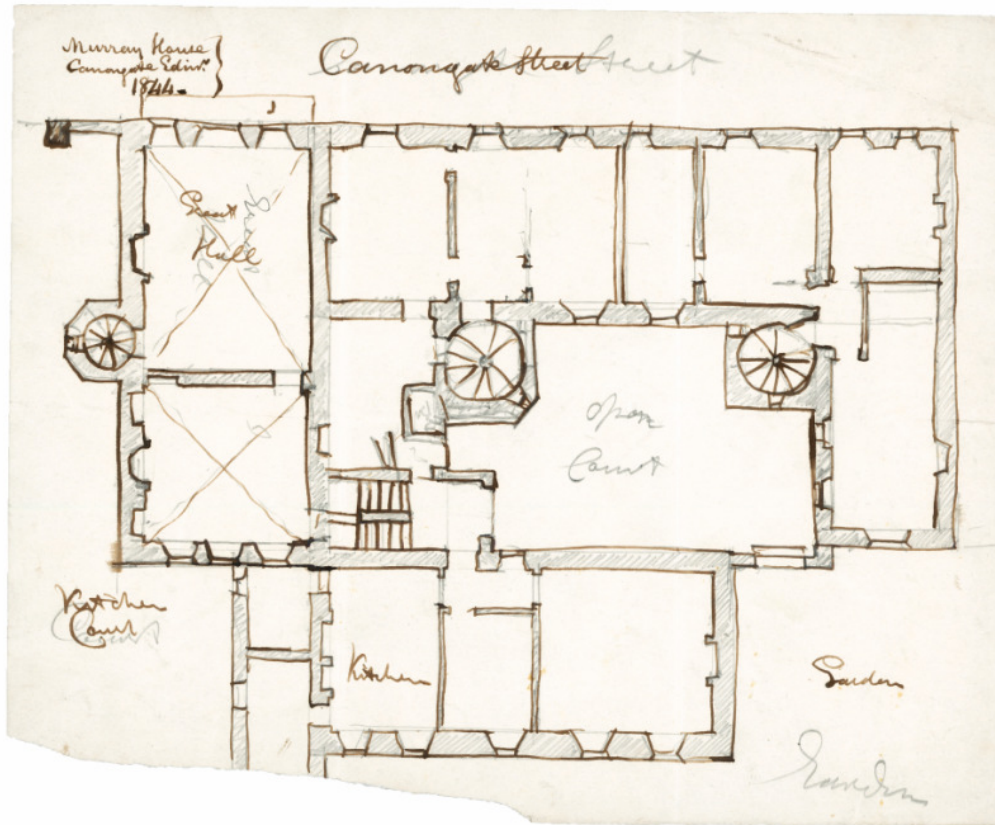 Murray House
Canongate Edinr.
1844.
Canongate Street
Street
Great
Hall
open
Court
Kitchen
Court
Kitchen
Garden
Garden